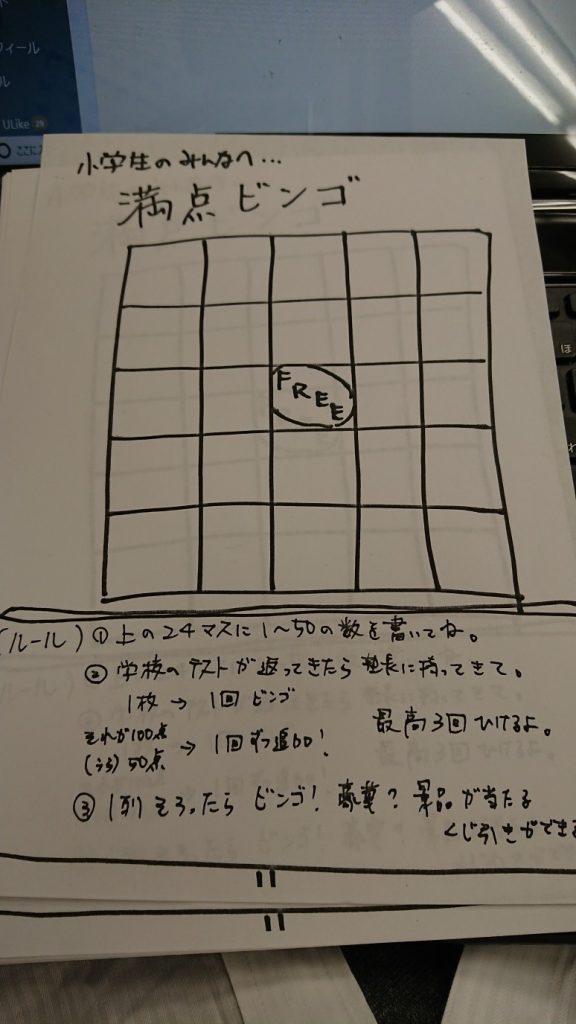 ィール
ル
ULike 25
ここに入
小学生のみんなへ…
満点ビンゴ
FREE
(ルール) ① 上の24マスに1〜50の数を書いてね。
② 学校のテストが返ってきたら塾長に持ってきて。
1枚 → 1回 ビンゴ
それが100点
(うら) 50点 → 1回ずつ追加!
最高3回ひけるよ。
③ 1列そろったら ビンゴ! 豪華? 景品が当たる
くじ引きができる
ほ